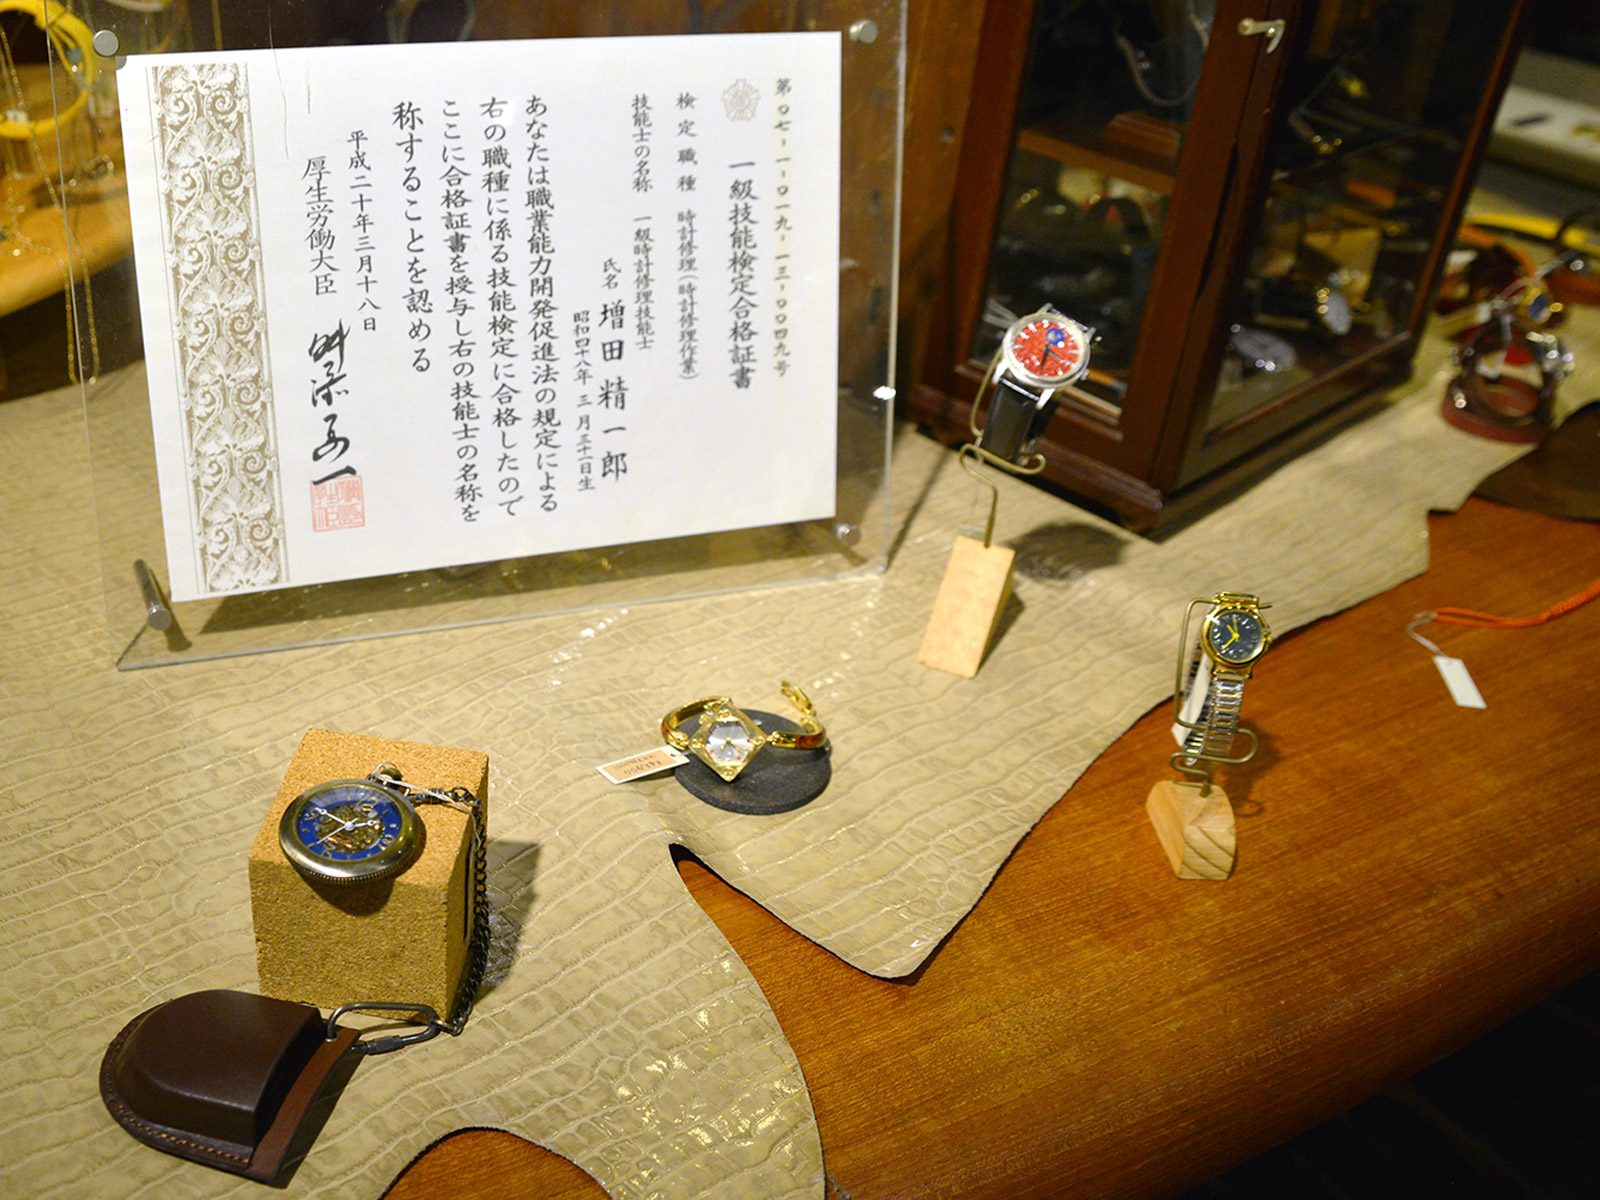 第〇七-一-〇一九-一三-〇〇四九号
一級技能検定合格証書
検定職種 時計修理(時計修理作業)
技能士の名称 一級時計修理技能士
氏名 増田精一郎
昭和四十八年三月三十一日生
あなたは職業能力開発促進法の規定による
右の職種に係る技能検定に合格したので
ここに合格証書を授与し右の技能士の名称を
称することを認める
平成二十年三月十八日
厚生労働大臣 舛添要一